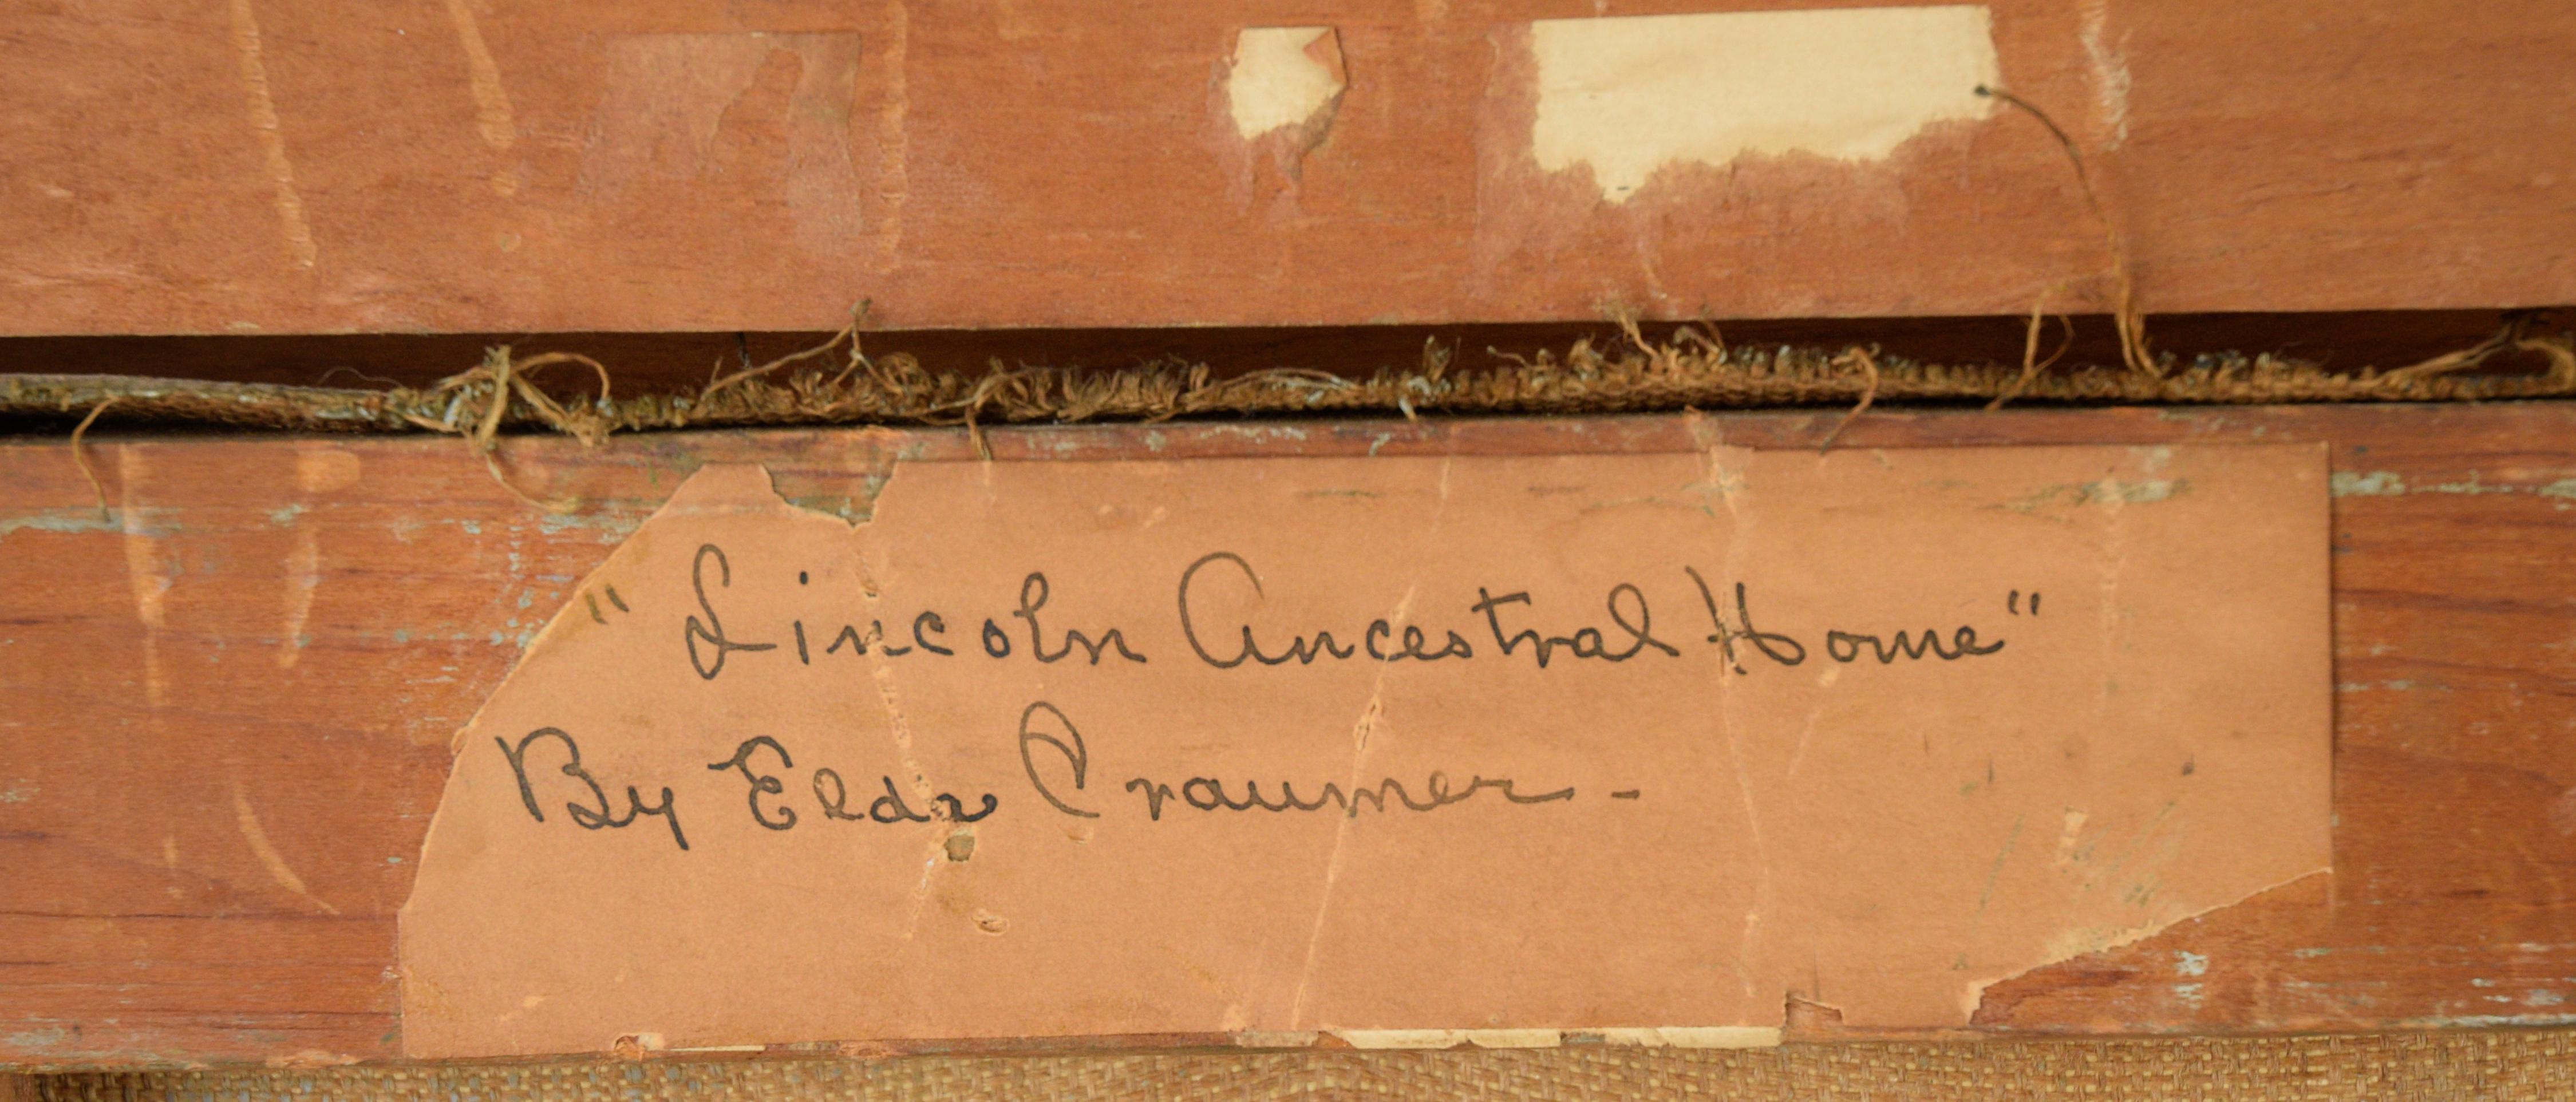 "Lincoln Ancestral Home"
By Elda Craumer -